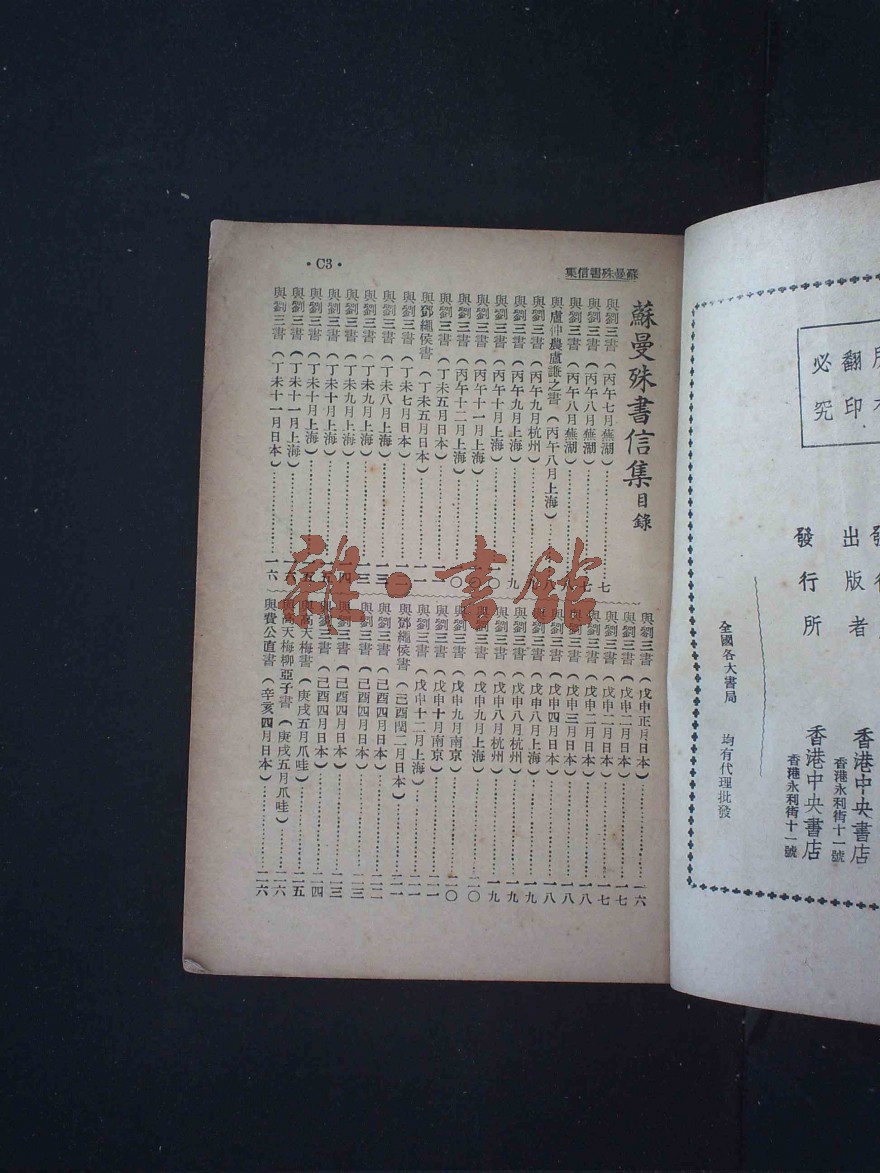 翻印
必究
出版者
香港中央書店
香港永利街十一號
發行所
香港中央書店
香港永利街十一號
全國各大書局 均有代理批發
蘇曼殊書信集
·C3·
蘇曼殊書信集目錄
與劉三書(丙午七月蕪湖)……七
與劉三書(丙午八月蕪湖)……七
與劉三書(丙午八月蕪湖)……八
與盧仲農盧謙之書(丙午八月上海)……八
與劉三書(丙午九月杭州)……九
與劉三書(丙午九月上海)……九
與劉三書(丙午十月上海)……一〇
與劉三書(丙午十一月上海)……一〇
與劉三書(丙午十二月上海)……一〇
與劉三書(丁未五月日本)……一一
與鄧繩侯書(丁未五月日本)……一一
與劉三書(丁未七月日本)……
與劉三書(丁未八月上海)……一三
與劉三書(丁未九月上海)……一三
與劉三書(丁未九月上海)……一四
與劉三書(丁未十月上海)……一五
與劉三書(丁未十月上海)……一五
與劉三書(丁未十一月上海)……一六
與劉三書(丁未十一月日本)……一六
與劉三書(戊申正月日本)……一六
與劉三書(戊申二月日本)……一七
與劉三書(戊申二月日本)……一七
與劉三書(戊申二月日本)……一八
與劉三書(戊申三月日本)……一八
與劉三書(戊申四月日本)……一八
與劉三書(戊申八月上海)……一九
與劉三書(戊申八月杭州)……一九
與劉三書(戊申八月杭州)……一九
與劉三書(戊申九月上海)……二〇
與劉三書(戊申九月南京)……二〇
與劉三書(戊申十月南京)……二一
與劉三書(戊申十二月上海)……二一
與鄧繩侯書(己酉閏二月日本)……二一
與劉三書(己酉四月日本)……二二
與劉三書(己酉四月日本)……二三
與劉三書(己酉四月日本)……二三
與劉三書(己酉四月日本)……二四
與高天梅書(庚戌五月爪哇)……二五
與高天梅柳亞子書(庚戌五月爪哇)……二六
與費公直書(辛亥四月日本)……二六
雜·書館